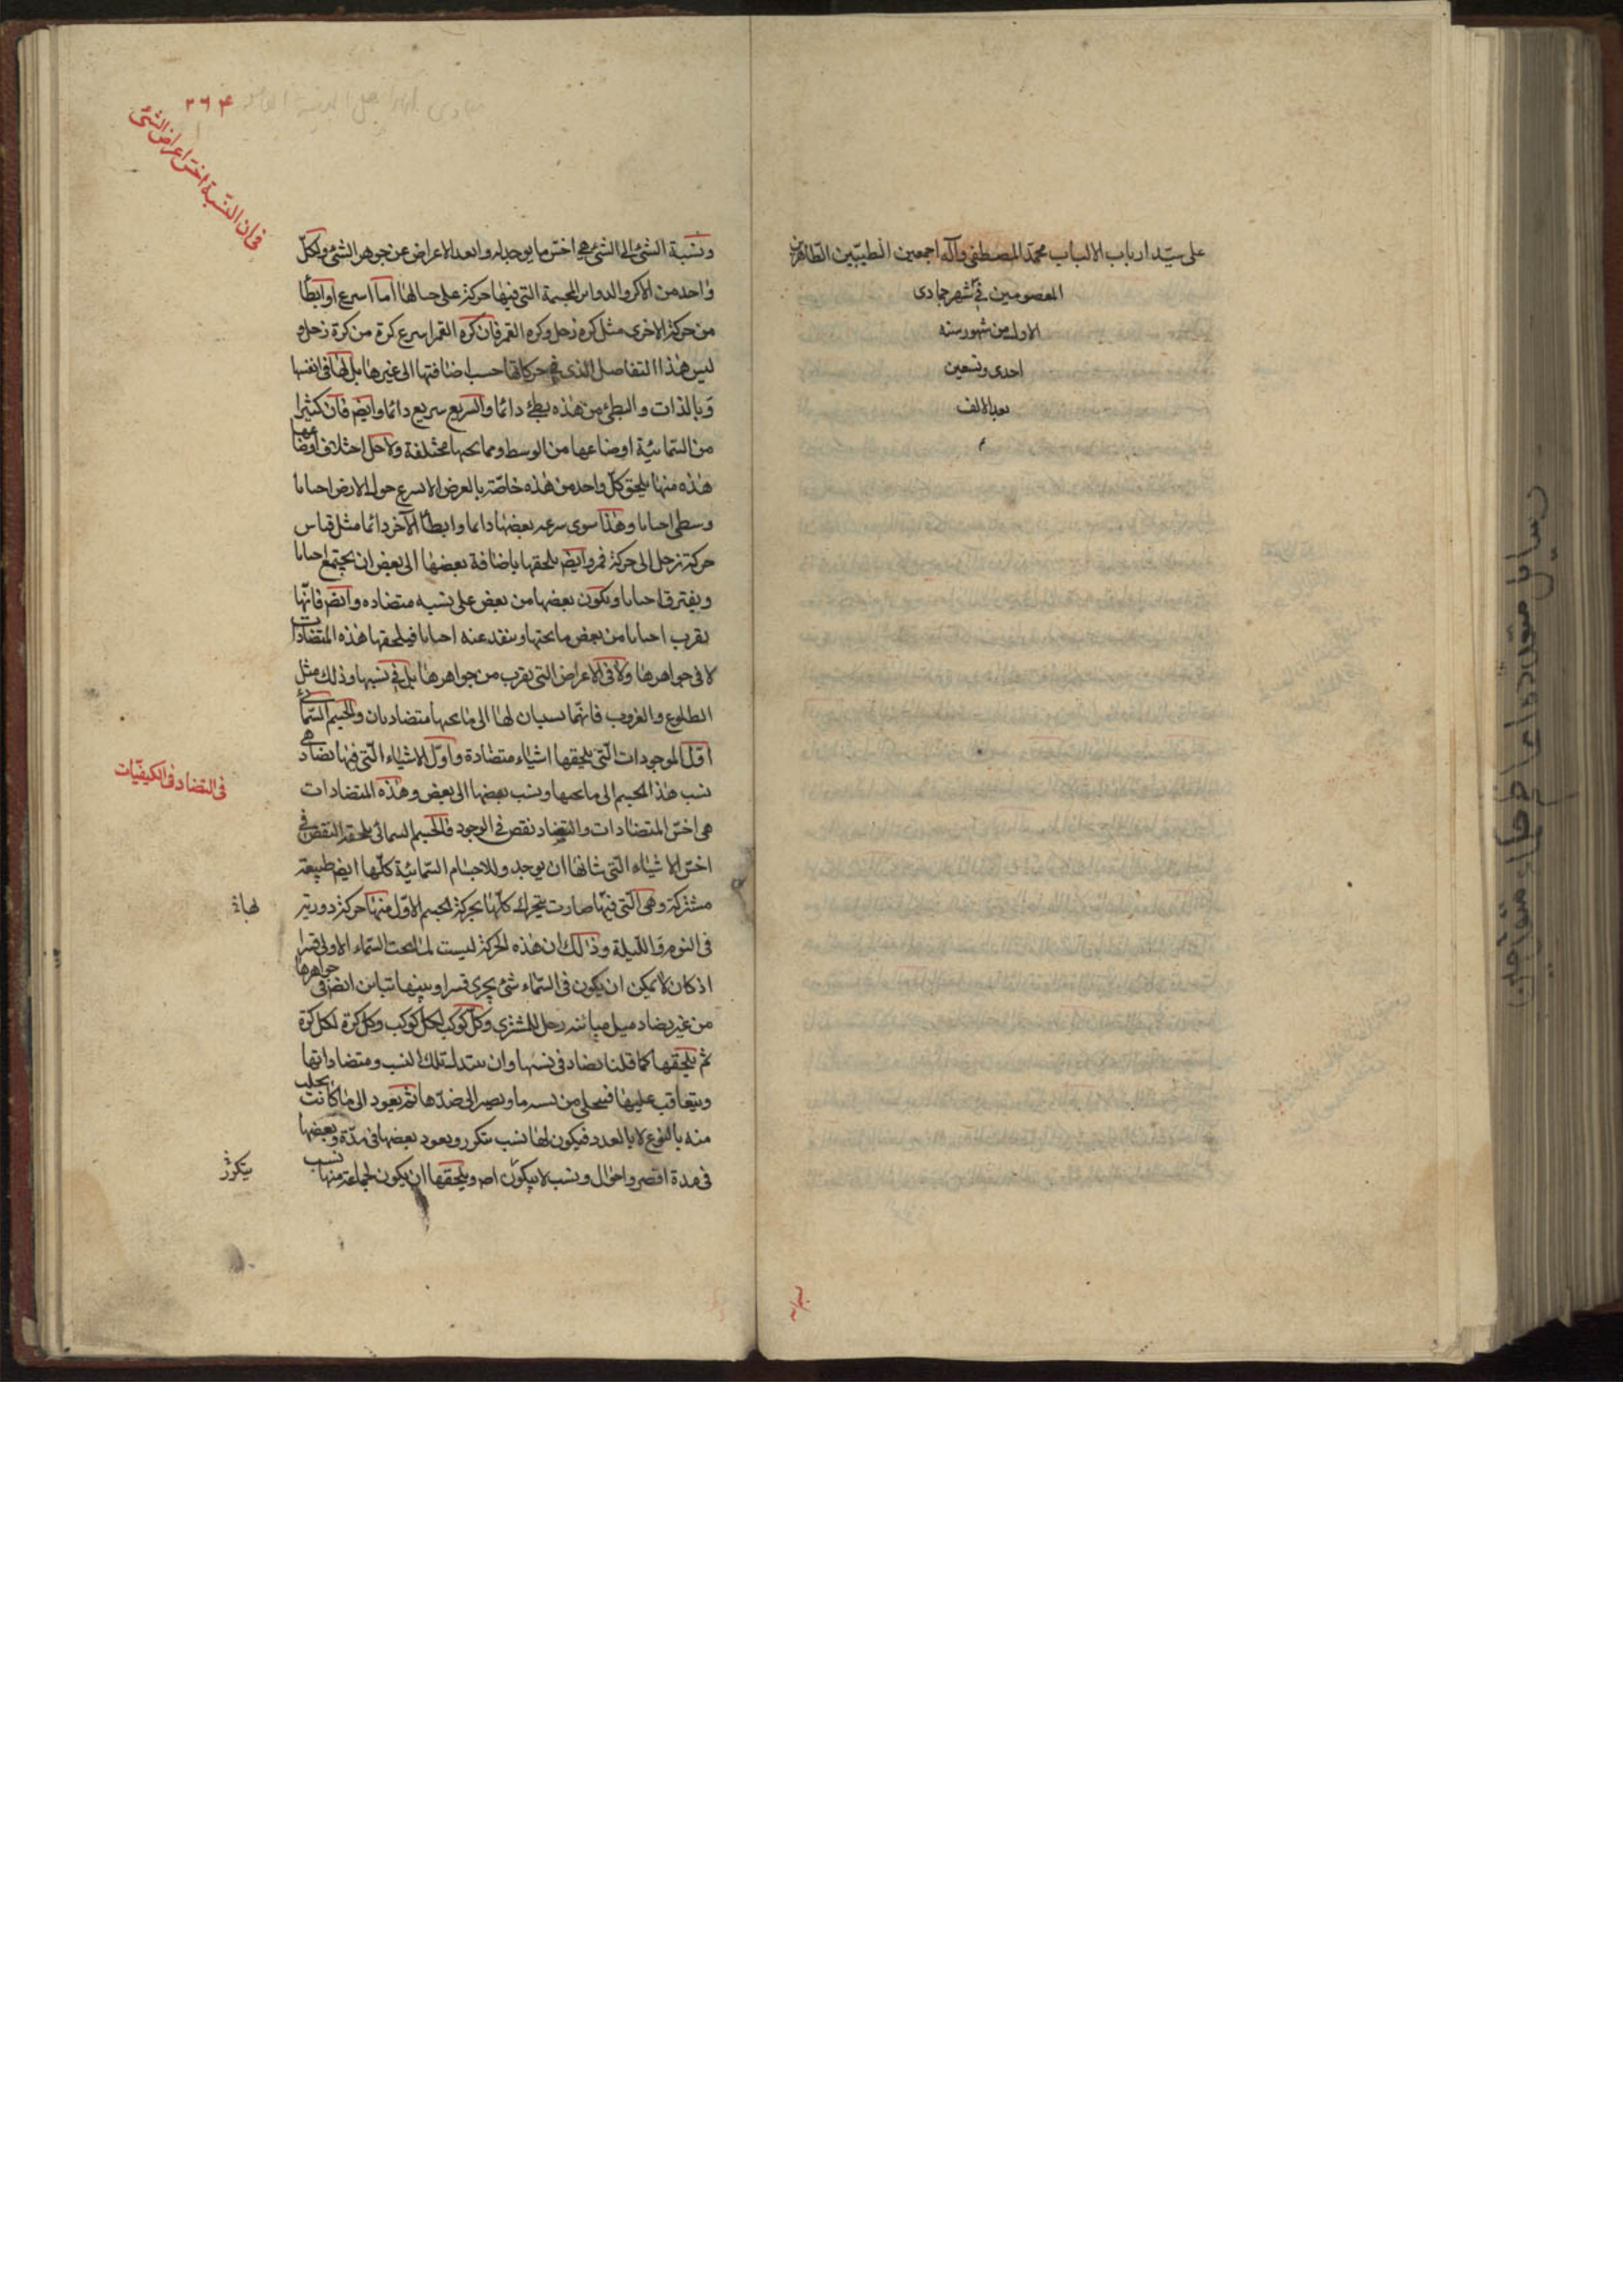 على سيّد ارباب الالباب محمّد المصطفى وآله اجمعين الطيّبين الطّاهرين
المعصومين في شهر جمادى
الاول من شهور سنه
احدى وتسعين
بعد الالف
٢٦٤
فى ان النّسبة اخسّ اعراض الشئ
ونسبة الشئ الى الشئ هي اخسّ ما يوجد له وابعد الاعراض عن جوهر الشئ ولكلّ
واحد من الاكر والدوائر المجسمة التى فيها حركة على حالها امّا اسرع او ابطأ
من حركة الاخرى مثل كره زحل وكره القمر فان كره القمر اسرع كرة من كرة زحل و
ليس هذا التفاضل الذى فى حركاتها حسب اضافتها الى غيرها بل لها فى انفسها
وبالذات والبطئ من هذه بطئ دائما والسريع سريع دائما وايضا فان كثيرا
من السّمائيّة اوضاعها من الوسط ومما تحتها مختلفة ولاجل اختلاف اوضاعها
هذه منها يلحق كلّ واحد من هذه خاصّة بالعرض الاسرع حول الارض احيانا
وسطى احيانا وهذا سوى سرعه بعضها دايما وابطأ الآخر دائما مثل قياس
حركة زحل الى حركة قمر وايضا يلحقها باضافة بعضها الى بعض ان يجتمع احيانا
ويفترق احيانا ويكون بعضها من بعض على نسبه متضاده وايضا فانّها
يقرب احيانا من بعض ما تحتها ويبعد عنه احيانا فيلحقها هذه المتضادات
لا فى جواهرها ولا فى الاعراض التى يقرب من جواهرها بل فى نسبها وذلك مثل
الطلوع والغروب فانّهما نسبتان لها الى ما تحتها متضادتان والجسم السّمائى
اوّل الموجودات الّتى يلحقها اشياء متضادة واوّل الاشياء الّتى فيها تضاد هى
نسب هذا الجسم الى ما تحتها ونسب بعضها الى بعض وهذه المتضادات
فى التضاد فى الكيفيّات
هى اخسّ المتضادات والتضاد نقص فى الوجود فالجسم السمائى يلحقه النقص فى
اخسّ الاشياء الّتى شانها ان يوجد وللاجسام السّمائيّة كلّها ايضا طبيعة
مشتركة وهى الّتى فيها صارت يتحرك كلّها بحركة الجسم الاوّل منها حركة دورية
لها
فى اليوم والليلة وذلك ان هذه الحركة ليست لما تحت السّماء الاولى قسرا
اذ كان لا يمكن ان يكون فى السّماء شئ يجرى قسرا وبينها تباين ايضا فى جواهرها
من غير تضاد مثل مباينة زحل للمشترى وكلّ كوكب لكلّ كوكب وكل كرة لكل كرة
ثم يلحقها كما قلنا تضاد فى نسبها وان يتبدل تلك النسب ومتضاداتها
ويتعاقب عليها فيتخلى من نسبه ما ويصير الى ضدّها ثمّ يعود الى ما كانت
منه بالنوع لا بالعدد فيكون لها نسب يتكرر ويعود بعضها فى مدّة وبعضها
فى مدة اقصر واحوال ونسب لا يتكرر اصلا ويلحقها ان يكون لجماعة منها نسب
يتكرر